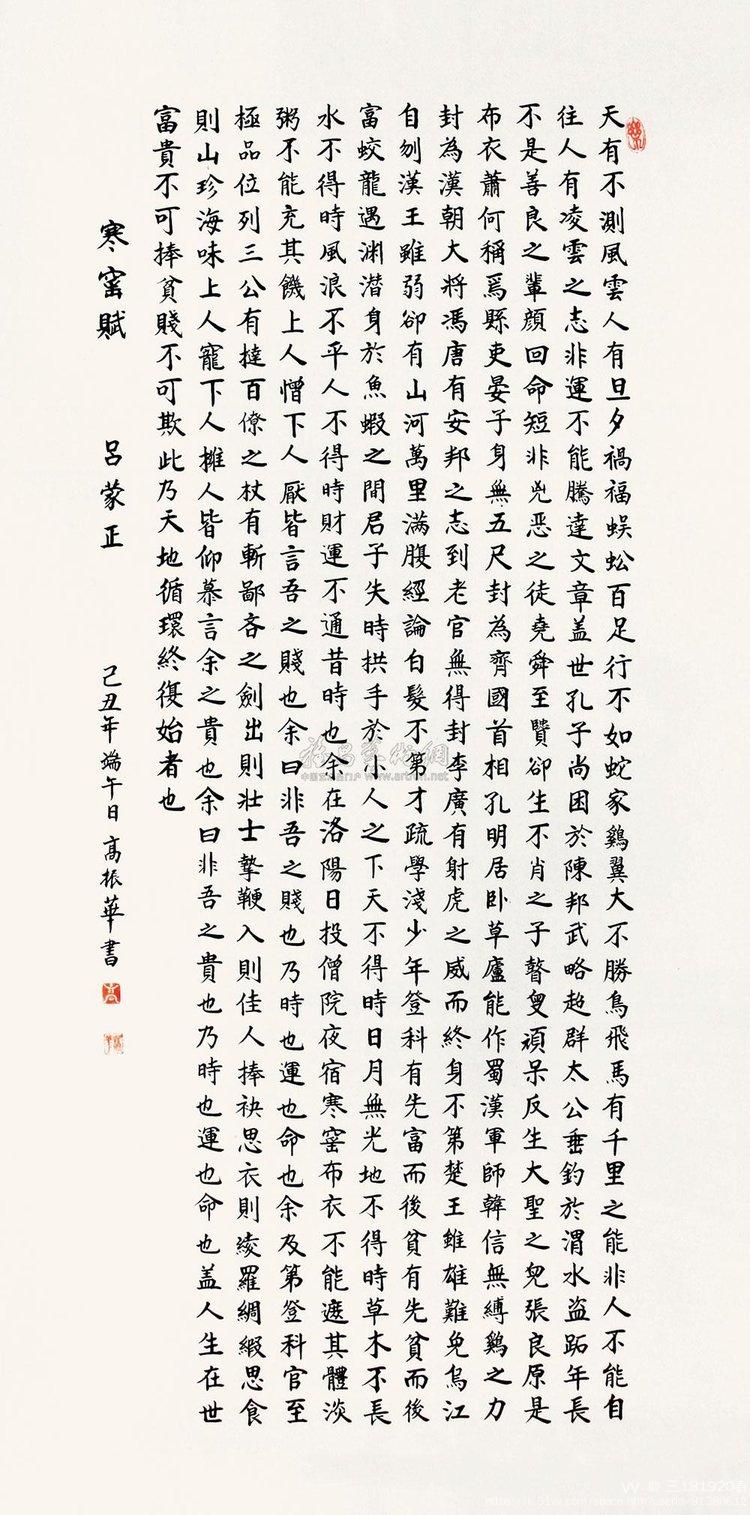 天有不測風雲人有旦夕禍福蜈蚣百足行不如蛇家鷄翼大不勝鳥飛馬有千里之能非人不能自
往人有凌雲之志非運不能騰達文章盖世孔子尚困於陳邦武略超群太公垂釣於渭水盗跖年長
不是善良之輩顔回命短非兇惡之徒堯舜至賢卻生不肖之子瞽叟頑呆反生大聖之兒張良原是
布衣蕭何稱為縣吏晏子身無五尺封為齊國首相孔明居卧草廬能作蜀漢軍師韓信無縛鷄之力
封為漢朝大将馮唐有安邦之志到老官無得封李廣有射虎之威而終身不第楚王雖雄難免烏江
自刎漢王雖弱卻有山河萬里滿腹經論白髮不第才疏學淺少年登科有先富而後貧有先貧而後
富蛟龍遇渊潜身於魚蝦之間君子失時拱手於小人之下天不得時日月無光地不得時草木不長
水不得時風浪不平人不得時財運不通昔時也余在洛陽日投僧院夜宿寒窑布衣不能遮其體淡
粥不能充其饑上人憎下人厭皆言吾之賤也余曰非吾之賤也乃時也運也命也余及第登科官至
極品位列三公有撻百僚之杖有斬鄙吝之劍出則壮士摯鞭入則佳人捧袂思衣則綾羅綢緞思食
則山珍海味上人寵下人擁人皆仰慕言余之貴也余曰非吾之貴也乃時也運也命也盖人生在世
富貴不可捧貧賤不可欺此乃天地循環終復始者也
寒窑賦 吕蒙正 己丑年端午日高振華書